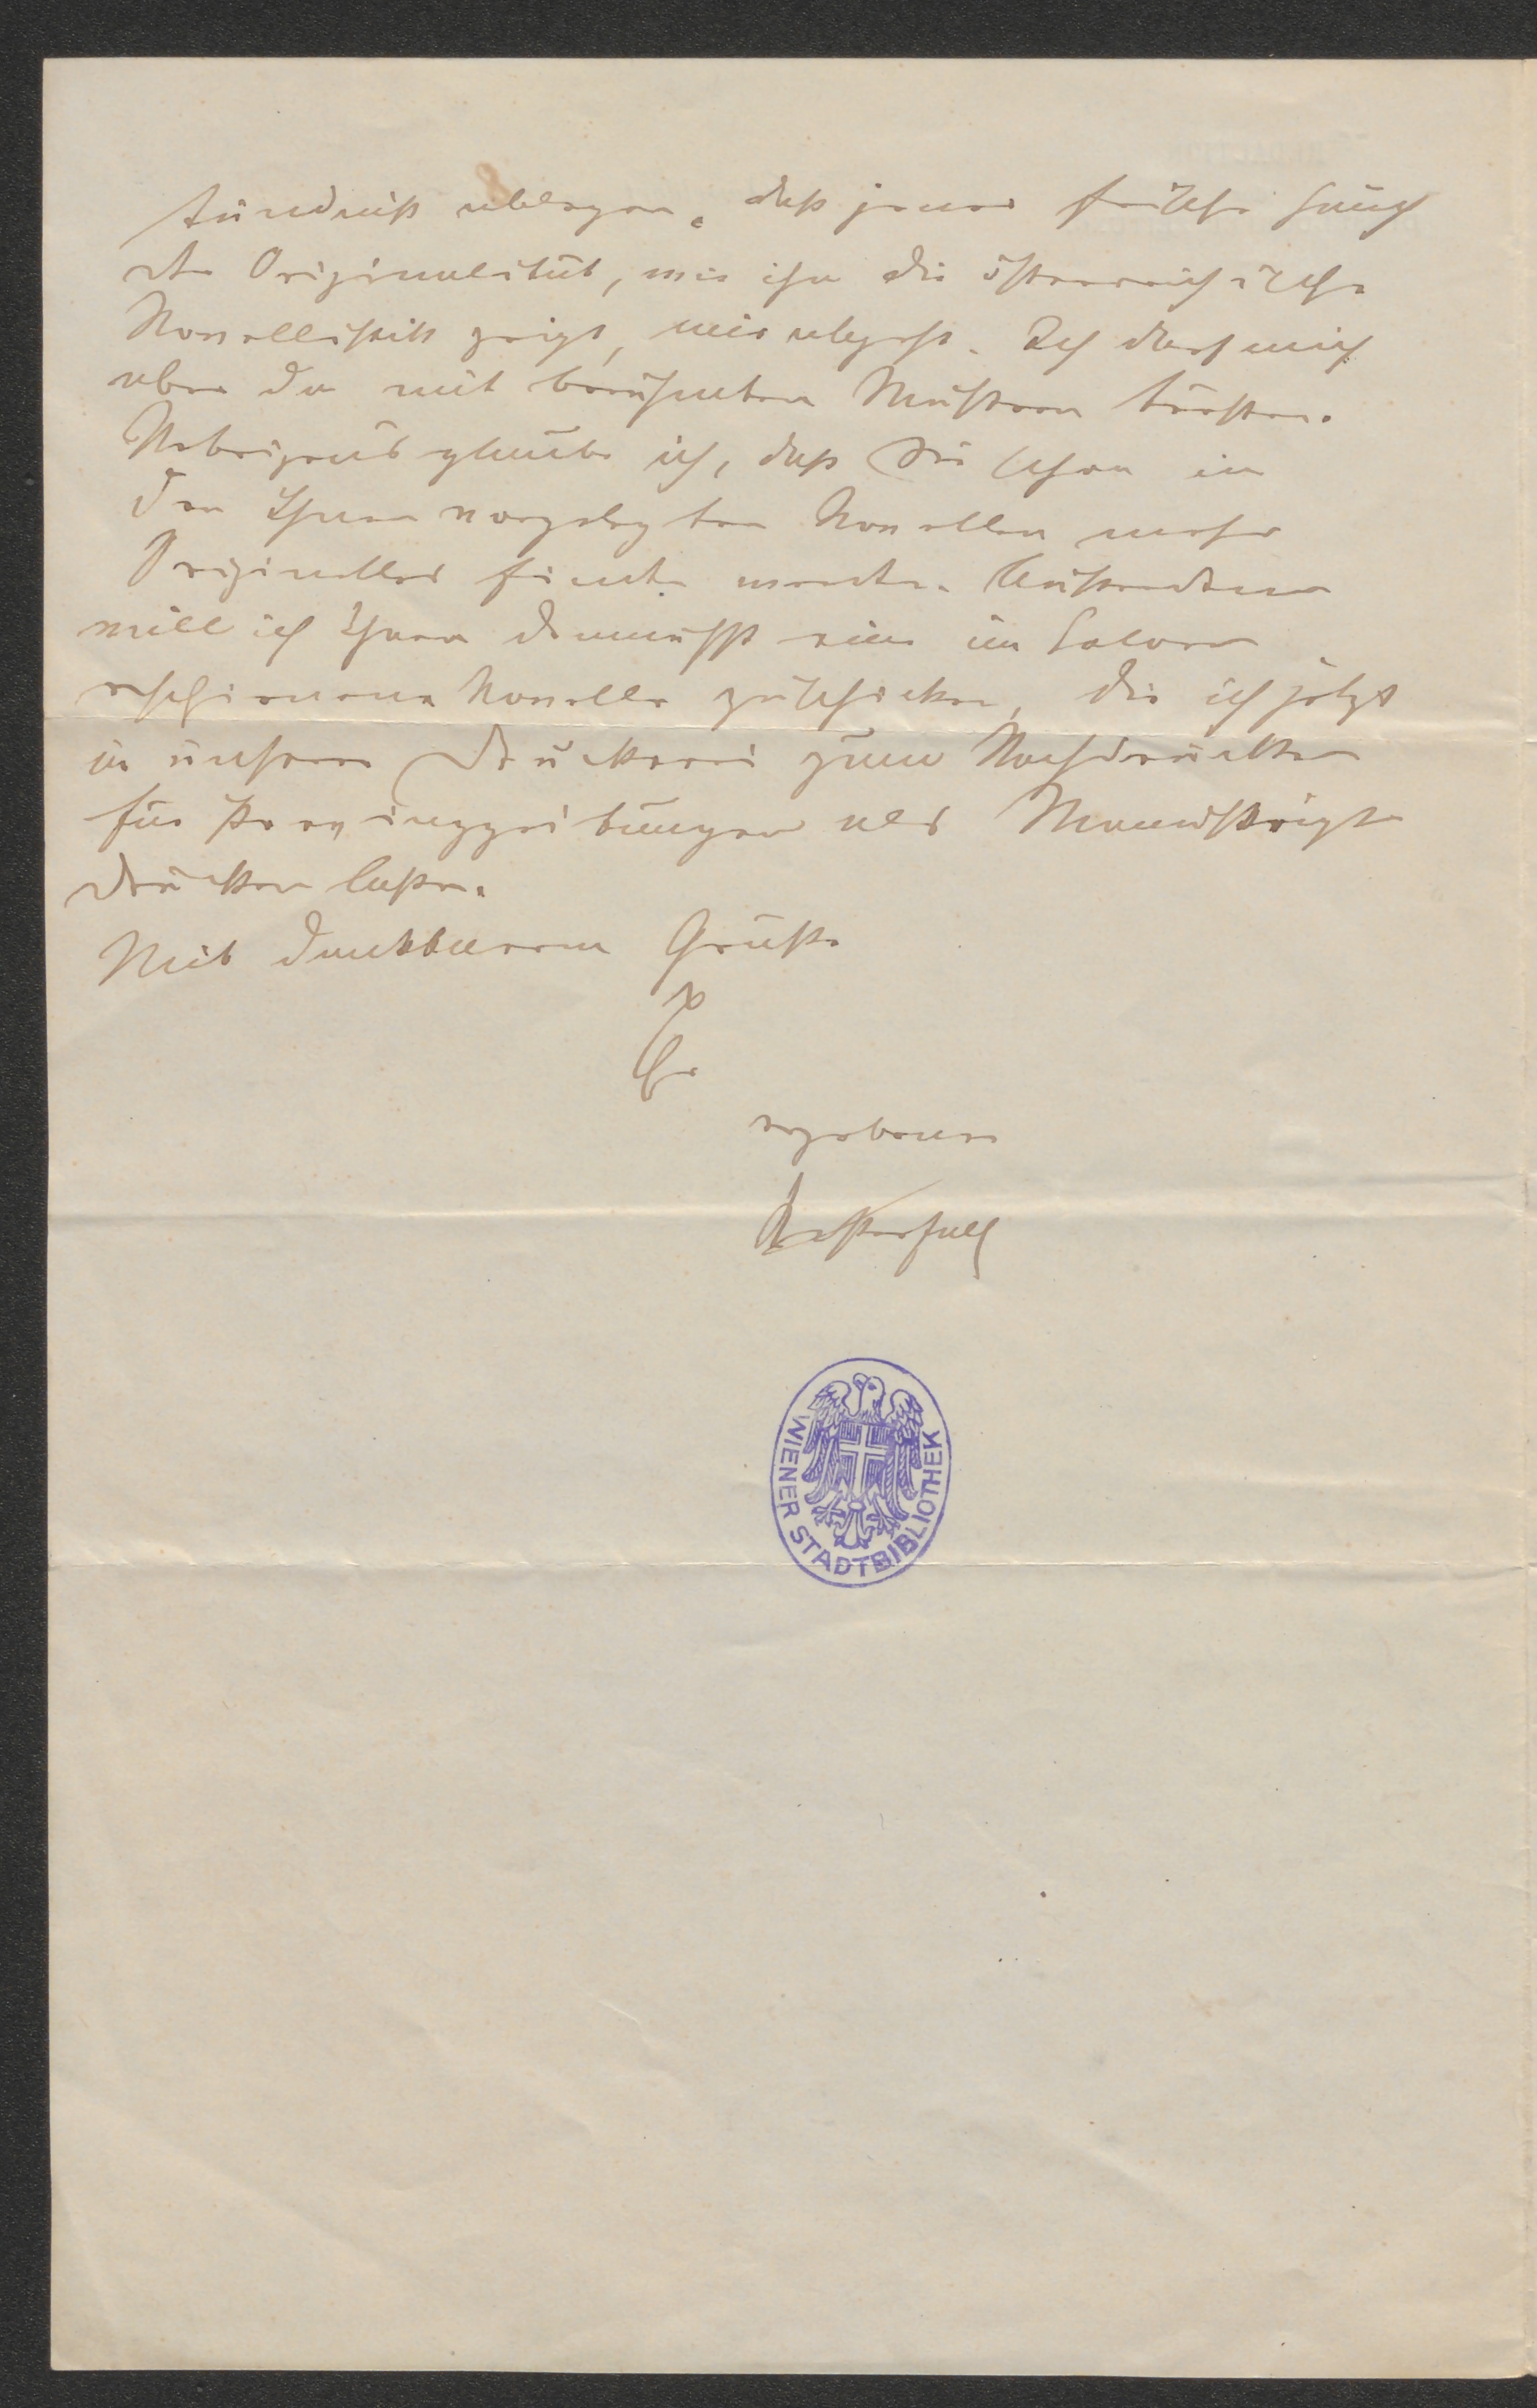 ständniß ablegen, daß jener frische Hauch
der Originalität, wie ihn die österreichische
Novellistik zeigt, mir abgeht. Ich darf mich
aber da mit berühmten Mustern trösten.
Uebrigens glaube ich, daß Sie schon in
den Ihnen vorgelegten Novellen mehr
Originelles finden werden. Außerdem
will ich Ihnen demnächst eine im Salon
erschienene Novelle zuschicken, die ich jetzt
in unserer Druckerei zum Nachdrucken
für Provinzzeitungen als Manuskript
drucken lasse.
Mit dankbarem Gruße
Ihr
ergebener
WIENER STADTBIBLIOTHEK